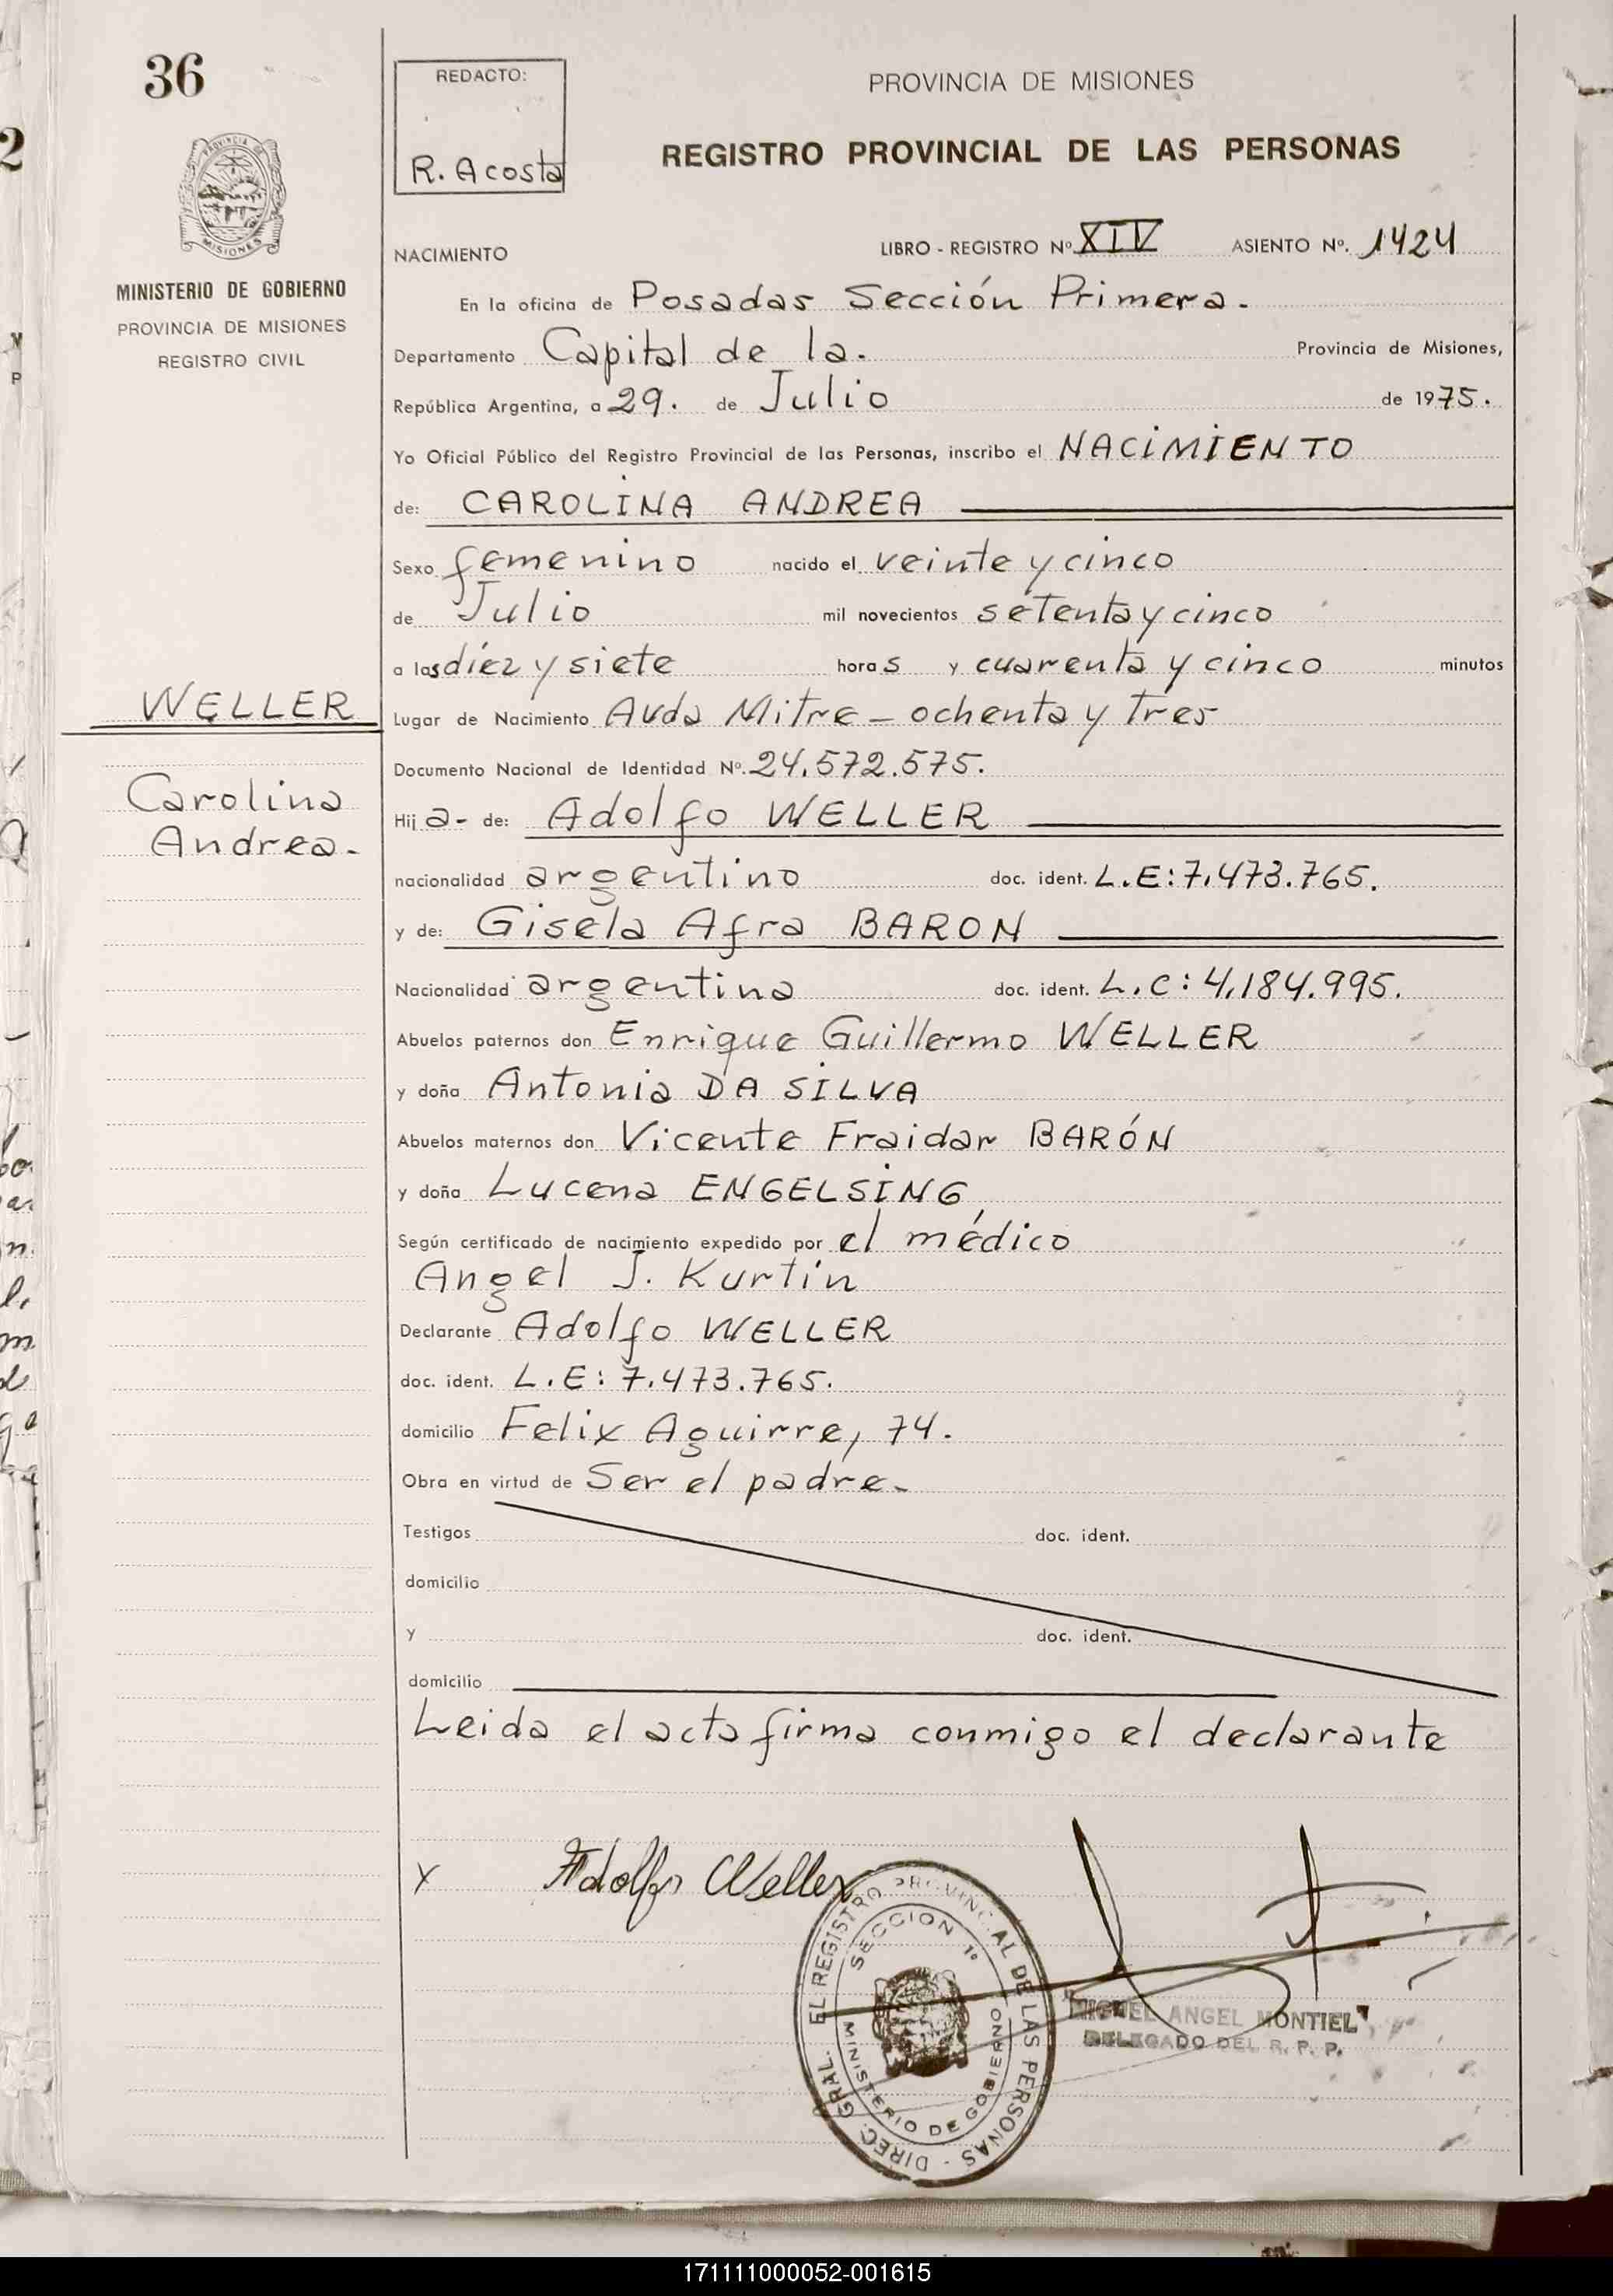 36
REDACTO:
R. Acosta
PROVINCIA DE MISIONES
REGISTRO PROVINCIAL DE LAS PERSONAS
PROVINCIA DE
MISIONES
MINISTERIO DE GOBIERNO
PROVINCIA DE MISIONES
REGISTRO CIVIL
NACIMIENTO
LIBRO - REGISTRO Nº XIV ASIENTO Nº. 1424
En la oficina de Posadas Sección Primera.
Departamento Capital de la. Provincia de Misiones,
República Argentina, a 29. de Julio de 1975.
Yo Oficial Público del Registro Provincial de las Personas, inscribo el NACIMIENTO
de: CAROLINA ANDREA
Sexo femenino nacido el veinte y cinco
de Julio mil novecientos setenta y cinco
a las diez y siete horas y cuarenta y cinco minutos
WELLER
Lugar de Nacimiento Avda Mitre - ochenta y Tres
Documento Nacional de Identidad Nº. 24.572.575.
Carolina
Andrea.
Hija- de: Adolfo WELLER
nacionalidad argentino doc. ident. L.E: 7.473.765.
y de: Gisela Afra BARON
Nacionalidad argentina doc. ident. L.C: 4.184.995.
Abuelos paternos don Enrique Guillermo WELLER
y doña Antonia DA SILVA
Abuelos maternos don Vicente Fraidar BARÓN
y doña Lucena ENGELSING
Según certificado de nacimiento expedido por el médico
Angel J. Kurtin
Declarante Adolfo WELLER
doc. ident. L.E: 7.473.765.
domicilio Felix Aguirre, 74.
Obra en virtud de Ser el padre.
Testigos doc. ident.
domicilio
y doc. ident.
domicilio
Leida el acta firma conmigo el declarante
X Adolfo Weller
DIREC. GRAL. EL REGISTRO PROVINCIAL DE LAS PERSONAS -
SECCION 1º
MINISTERIO DE GOBIERNO
"MIGUEL ANGEL MONTIEL"
DELEGADO DEL R. P. P.
171111000052-001615